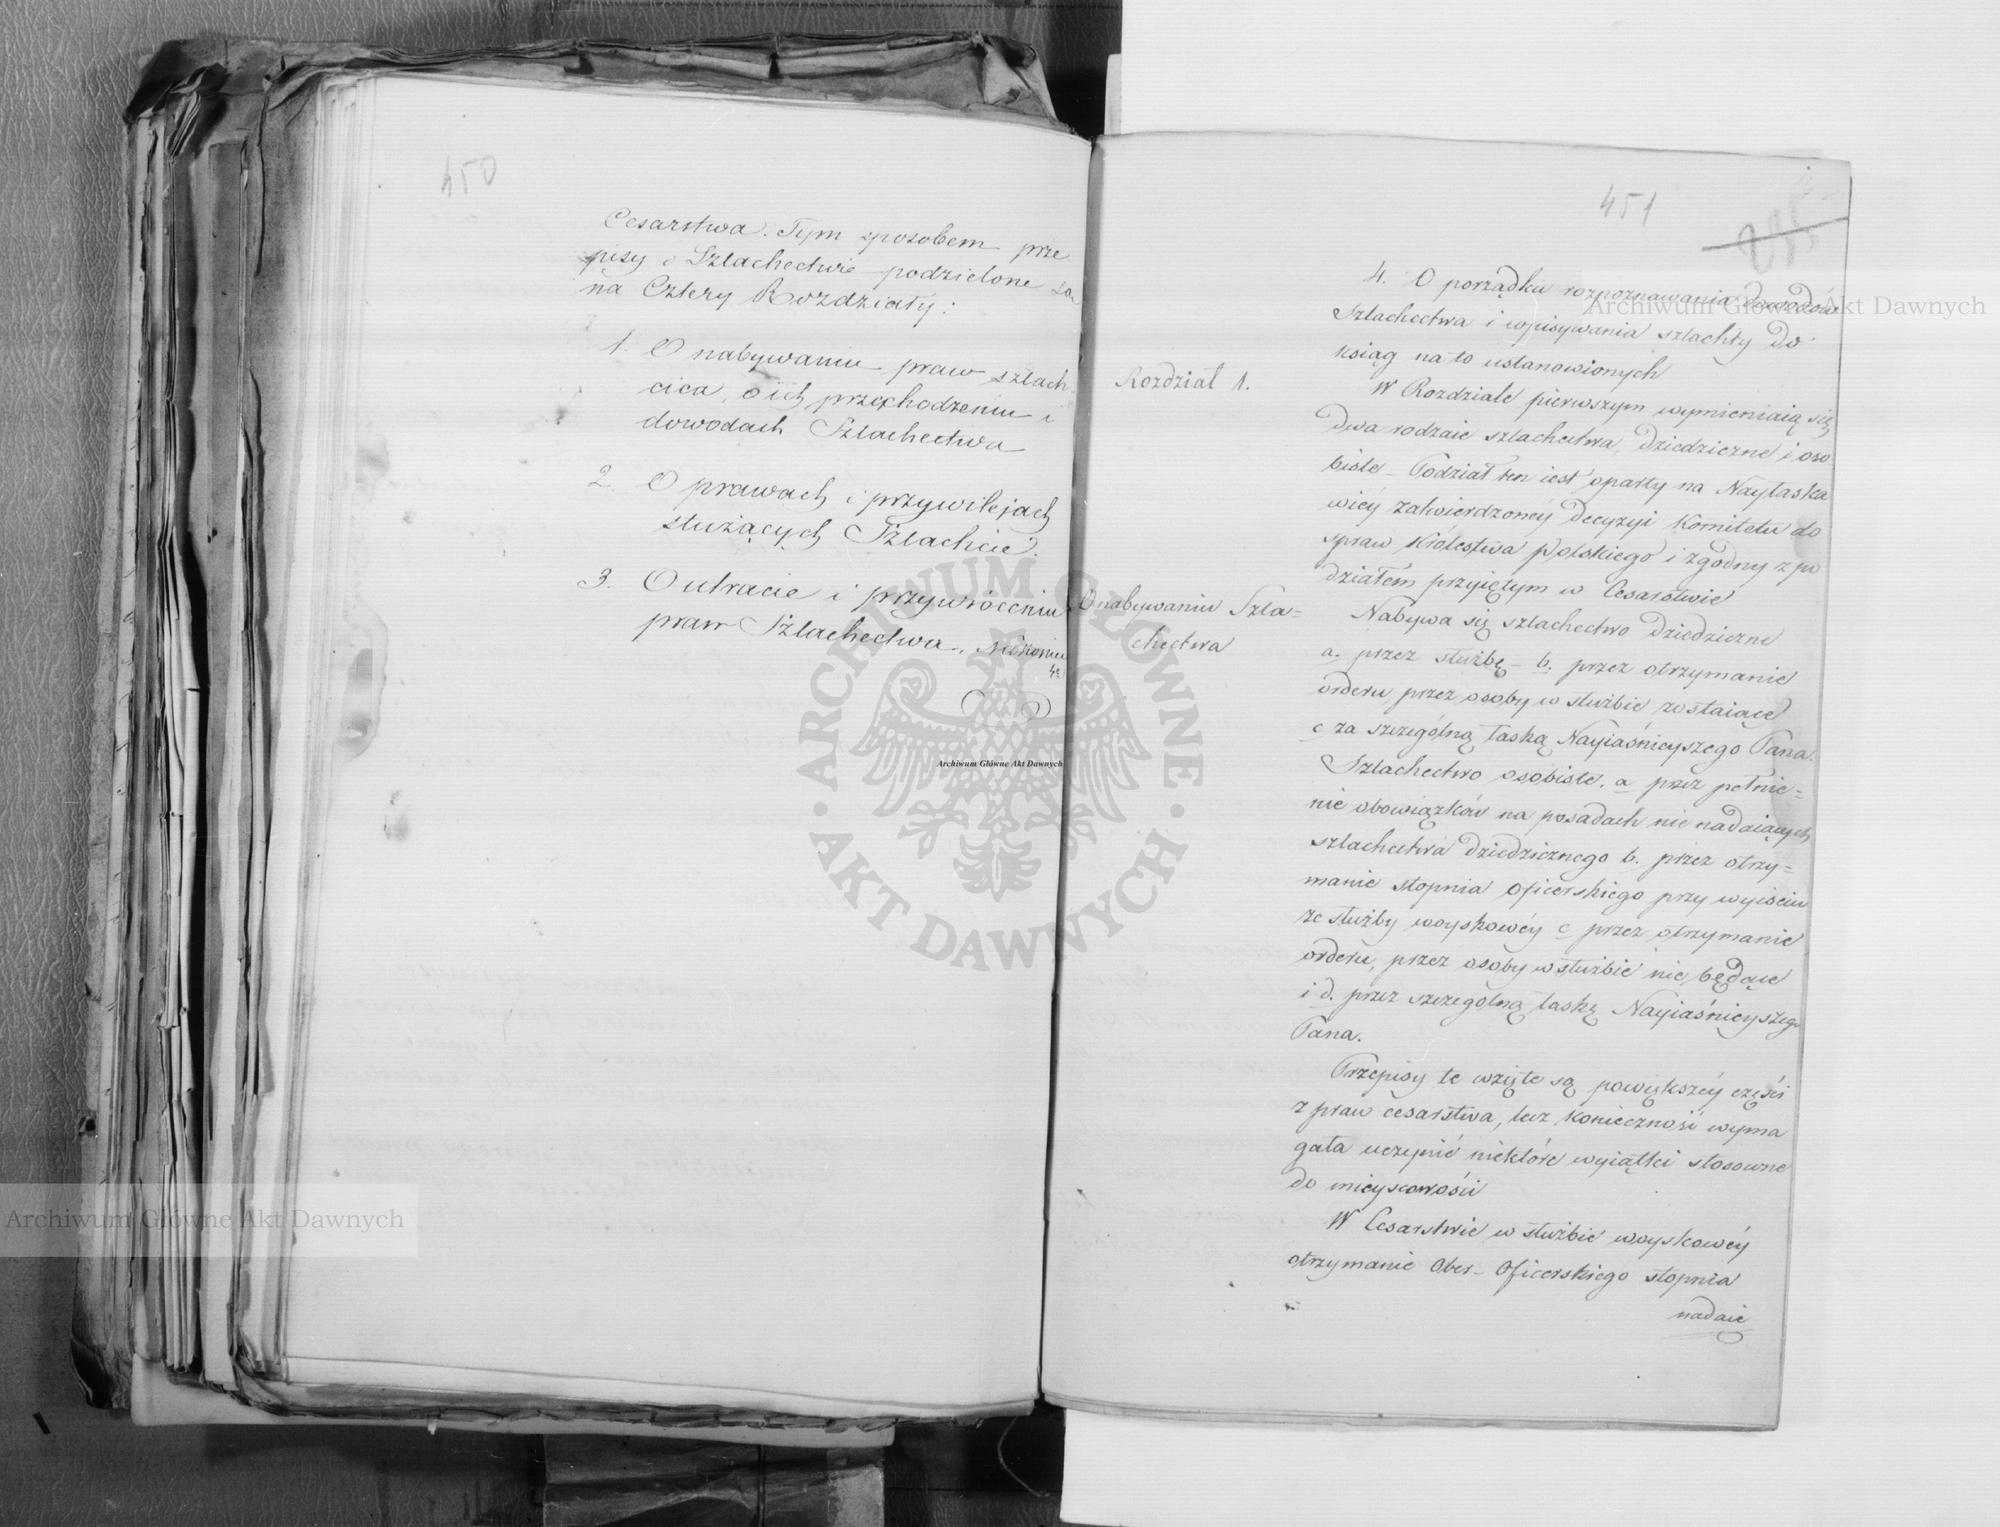 450
Cesarstwa. Tym sposobem prze
pisy o Szlachectwie podzielone są
na Cztery Rozdziały:
1. O nabywaniu praw szlach
cica, o ich przechodzeniu i
dowodach Szlachectwa
2. O prawach i przywilejach
służących Szlachcie.
3. O utracie i przywróceniu
praw Szlachectwa.
451
4. O porządku rozpoznawania dowodów
Szlachectwa i wpisywania szlachty do
ksiąg na to ustanowionych
Rozdział 1.
W Rozdziale pierwszym wymieniaią się
dwa rodzaie szlachectwa, dziedziczne i oso
biste – Podział ten iest oparty na Nayłaska
wiéy zatwierdzonéy decyzyi Komitetu do
spraw Królestwa Polskiego i zgodny z po
działem przyiętym w Cesarstwie
O nabywaniu Szla=
chectwa
Nabywa się szlachectwo dziedziczne
a. przez służbę – b. przez otrzymanie
orderu przez osoby w służbie zostaiące
c za szczególną łaską Nayiaśnieyszego Pana.
Szlachectwo osobiste. a przez pełnie=
nie obowiązków na posadach nie nadaiących
szlachectwa dziedzicznego b. przez otrzy=
manie stopnia oficerskiego przy wyiściu
ze służby woyskowéy c przez otrzymanie
orderu, przez osoby w służbie nie będące
i d. przez szczególną łaskę Nayiaśnieyszego
Pana.
Przepisy te wzięte są powiększéy części
z praw cesarstwa, lecz konieczność wyma
gała uczynić niektóre wyiątki stosowne
do mieyscowości
W Cesarstwie w służbie woyskowéy
otrzymanie Ober-Oficerskiego stopnia
nadaie
Archiwum Główne Akt Dawnych
Archiwum Główne Akt Dawnych
Archiwum Główne Akt Dawnych
· ARCHIWUM GŁÓWNE ·
AKT DAWNYCH